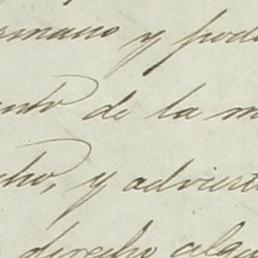 ermano y pod
ento de la m
cho, y advierte
derecho algu